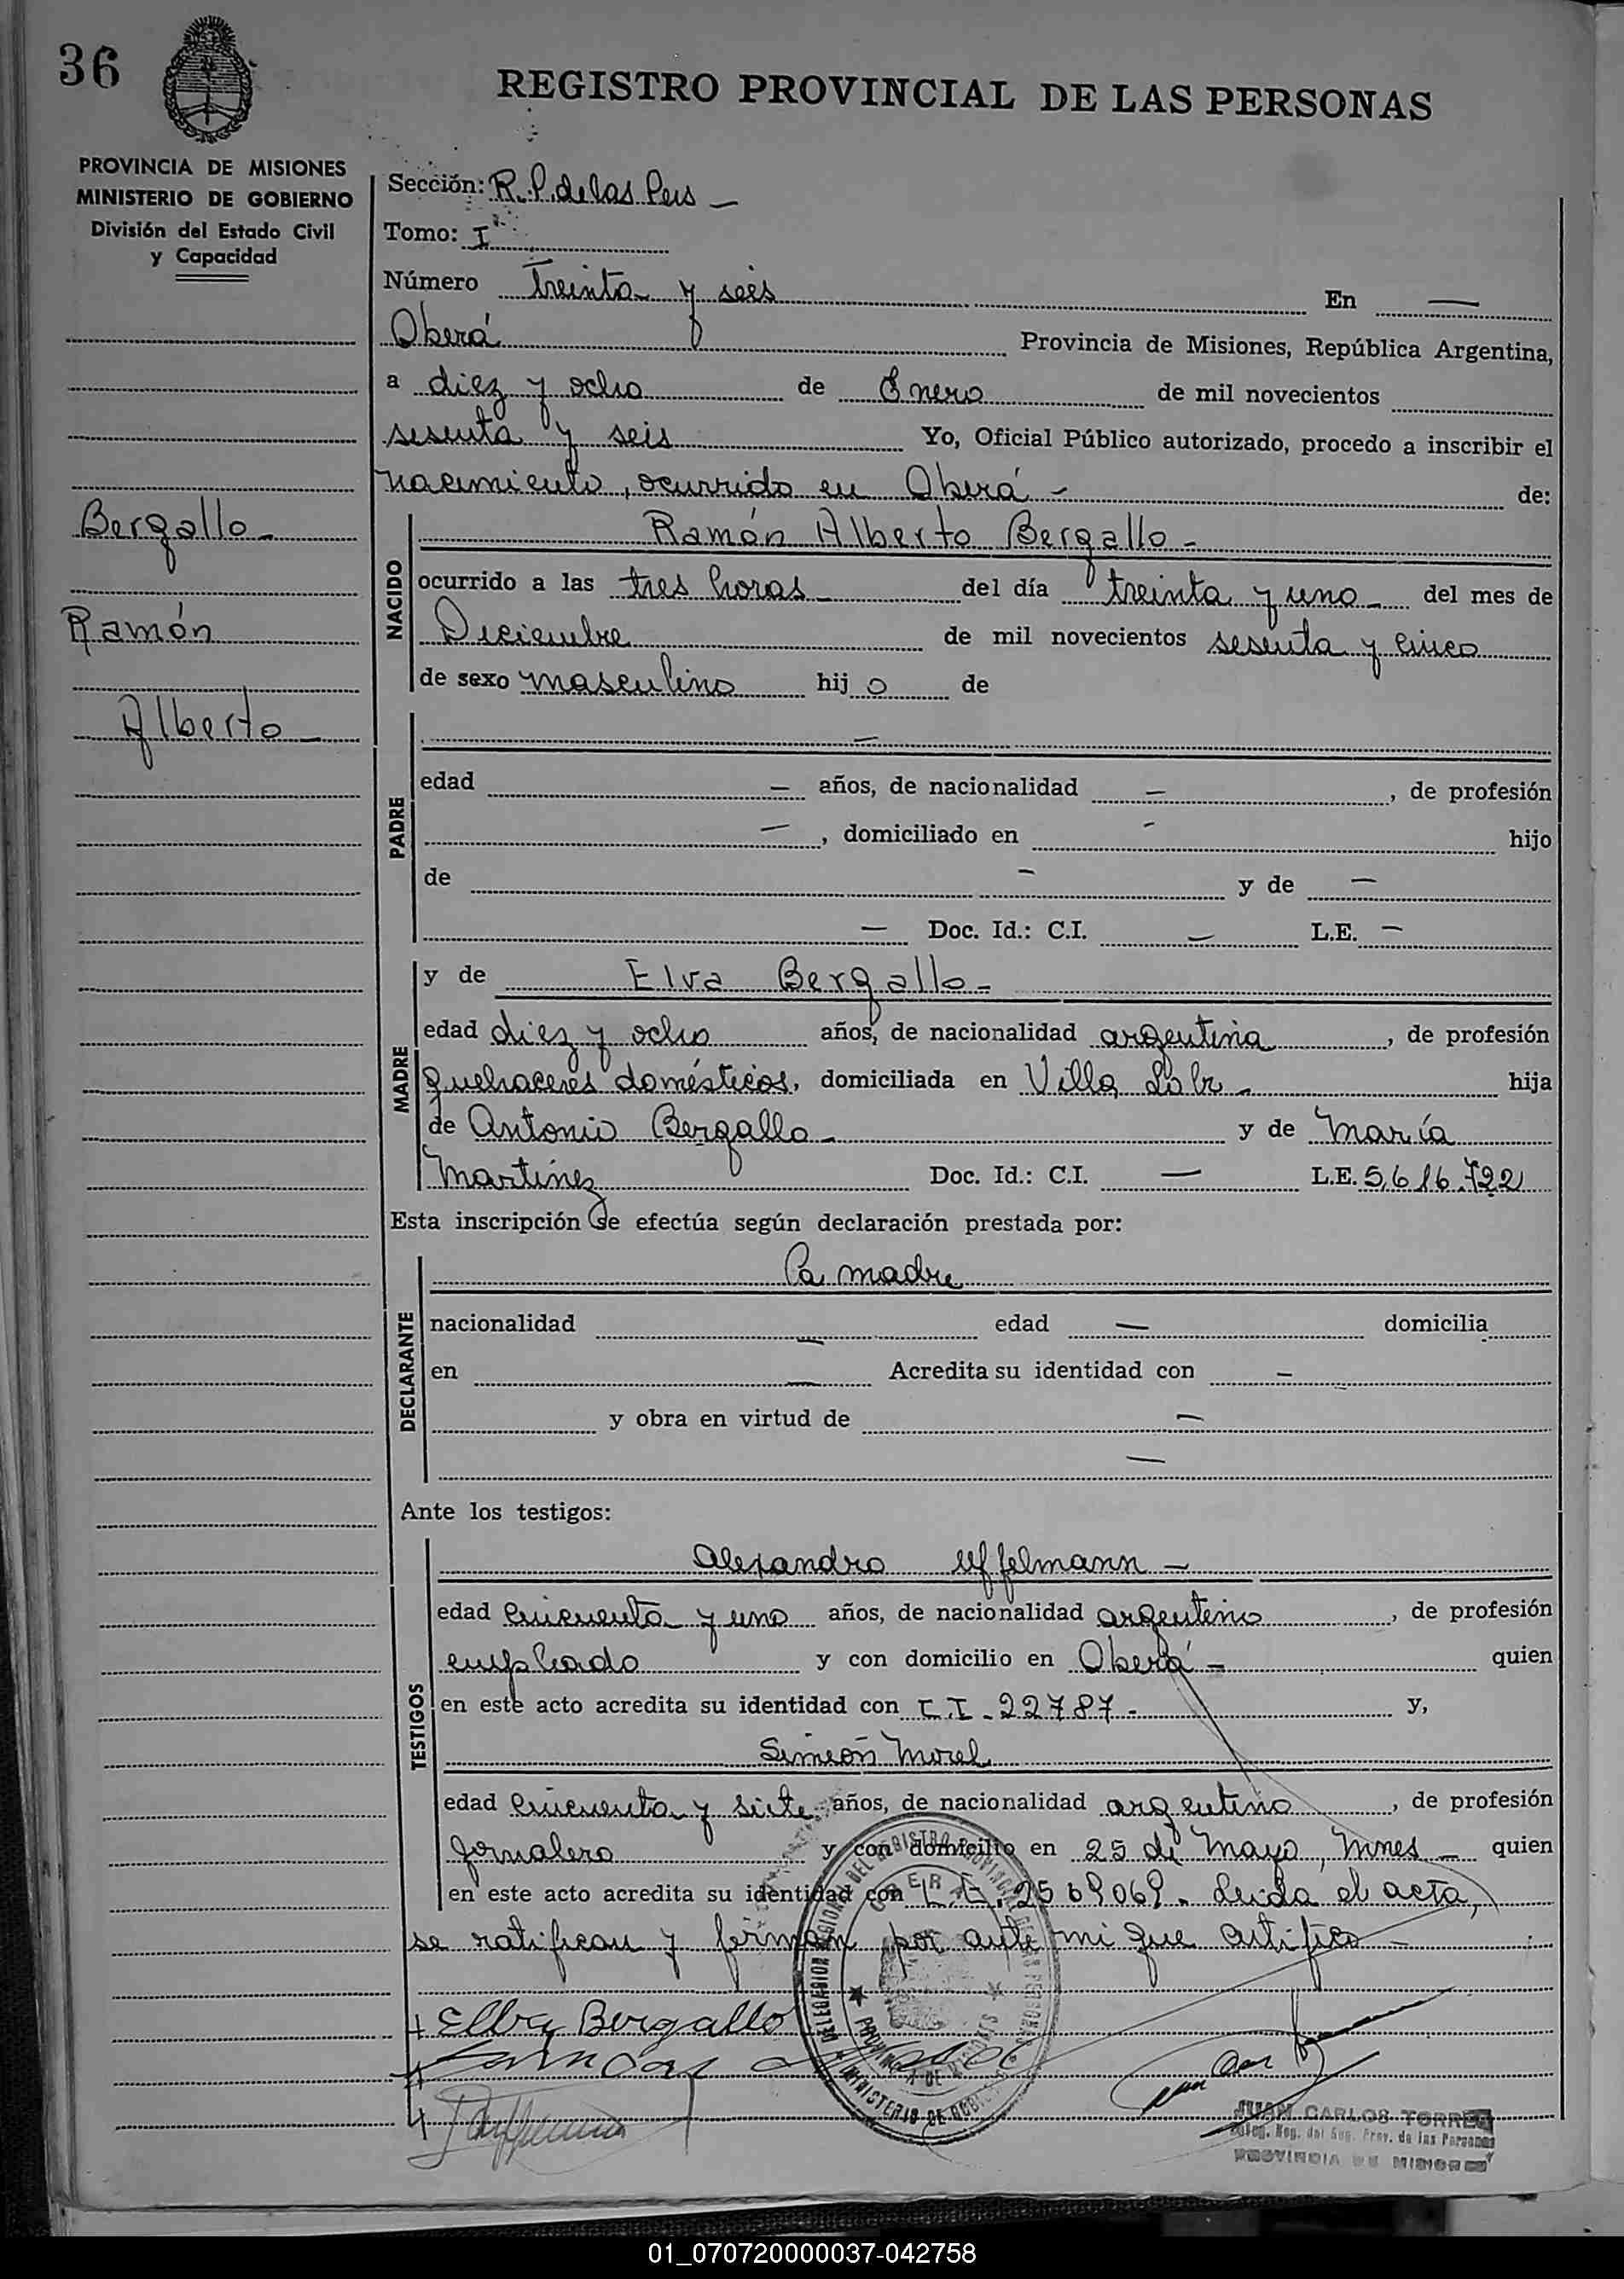 36
REGISTRO PROVINCIAL DE LAS PERSONAS
PROVINCIA DE MISIONES
MINISTERIO DE GOBIERNO
División del Estado Civil
y Capacidad
Bergallo -
Ramón
Alberto -
Sección: R.P. de las Pers -
Tomo: I
Número Treinta y seis En -
Oberá Provincia de Misiones, República Argentina,
a diez y ocho de Enero de mil novecientos
sesenta y seis Yo, Oficial Público autorizado, procedo a inscribir el
nacimiento, ocurrido en Oberá - de:
NACIDO
Ramón Alberto Bergallo -
ocurrido a las tres horas - del día treinta y uno - del mes de
Diciembre de mil novecientos sesenta y cinco
de sexo masculino hij o de
PADRE
-
edad - años, de nacionalidad -, de profesión
-, domiciliado en - hijo
de - y de -
- Doc. Id.: C.I. - L.E. -
MADRE
y de Elva Bergallo -
edad diez y ocho años, de nacionalidad argentina, de profesión
quehaceres domésticos, domiciliada en Villa - hija
de Antonio Bergallo - y de María
Martínez Doc. Id.: C.I. - L.E. 5.616.722
Esta inscripción se efectúa según declaración prestada por:
DECLARANTE
La madre
nacionalidad - edad - domicilia
en - Acredita su identidad con -
y obra en virtud de -
-
Ante los testigos:
TESTIGOS
Alejandro Uffelmann -
edad cincuenta y uno años, de nacionalidad argentino, de profesión
empleado y con domicilio en Oberá - quien
en este acto acredita su identidad con C.I. - 22787 - y,
Simeón Morel
edad cincuenta y siete años, de nacionalidad argentino, de profesión
Jornalero y con domicilio en 25 de Mayo, Mnes - quien
en este acto acredita su identidad con L.E. 2569069 - Leída el acta,
se ratifican y firman por ante mi que certifico -
Elba Bergallo
OBERA
PROVINCIA DE MISIONES
MINISTERIO DE GOBIERNO
JUAN CARLOS TORRES
PROVINCIA DE MISIONES
01_070720000037-042758